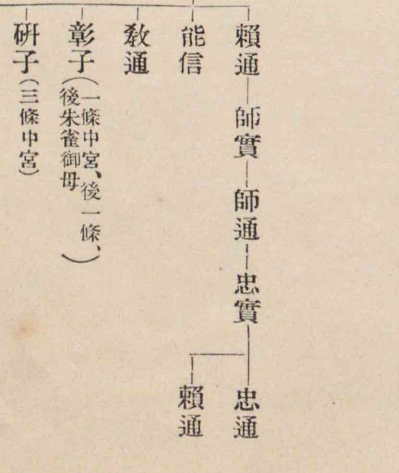 賴通―師實―師通―忠實―忠通
賴通
能信
敎通
彰子(一條中宮、後一條、
後朱雀御母)
硏子(三條中宮)